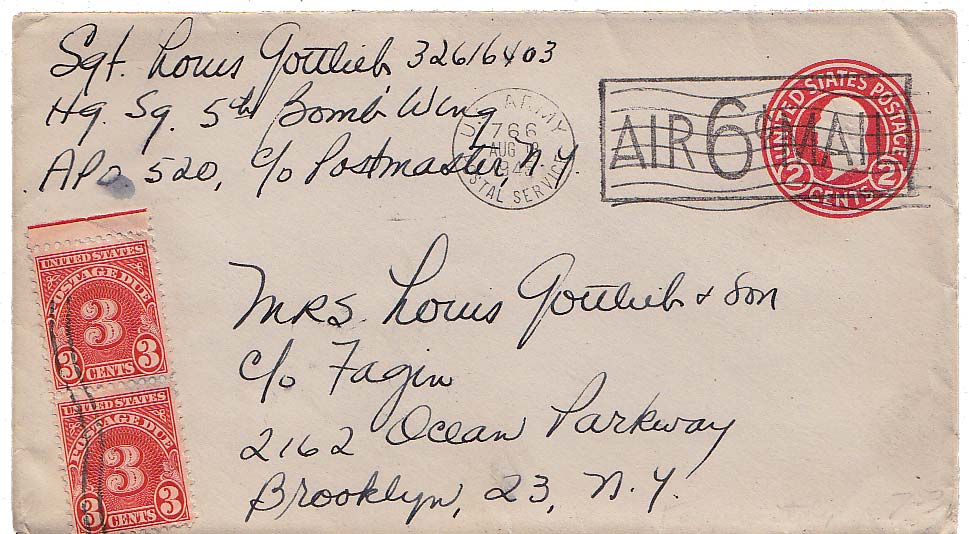 Sgt. Louis Gottlieb 32616403
Hq. Sq. 5th Bomb Wing
APO 520, c/o Postmaster, N.Y.
U.S. ARMY
766
AUG
POSTAL SERVICE
AIR 6¢ MAIL
UNITED STATES POSTAGE
2 CENTS 2
UNITED STATES
POSTAGE DUE
3
3 CENTS 3
UNITED STATES
POSTAGE DUE
3
3 CENTS 3
MRS. Louis Gottlieb & Son
c/o Fagin
2162 Ocean Parkway
Brooklyn, 23, N.Y.